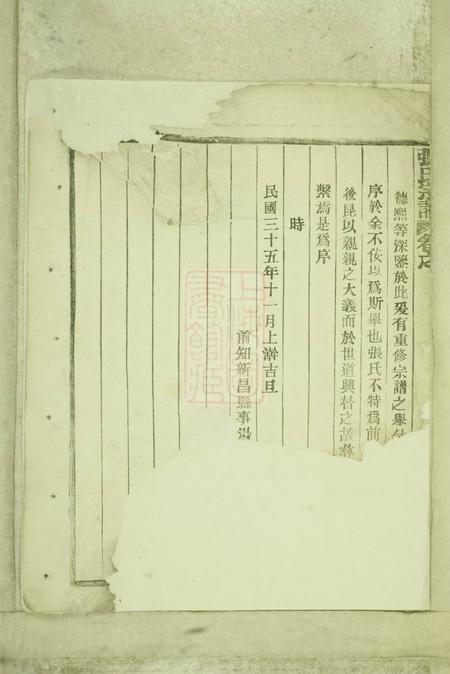 張氏宗譜
德熙等深鑒於此爰有重修宗譜之舉
序於余不佞以爲斯舉也張氏不特爲前
後昆以親親之大義而於世道興替之故
繫焉是爲序
時
民國三十五年十一月上澣吉旦
前知新昌縣事